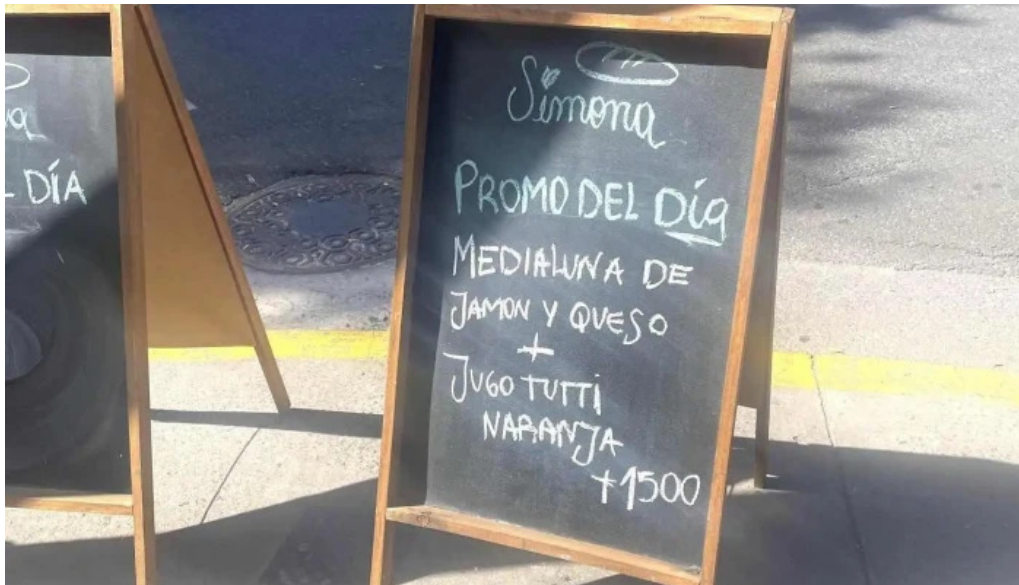 L DÍA
Simona
PROMO DEL DÍA
MEDIALUNA DE
JAMON Y QUESO
+
JUGO TUTTI
NARANJA
+1500